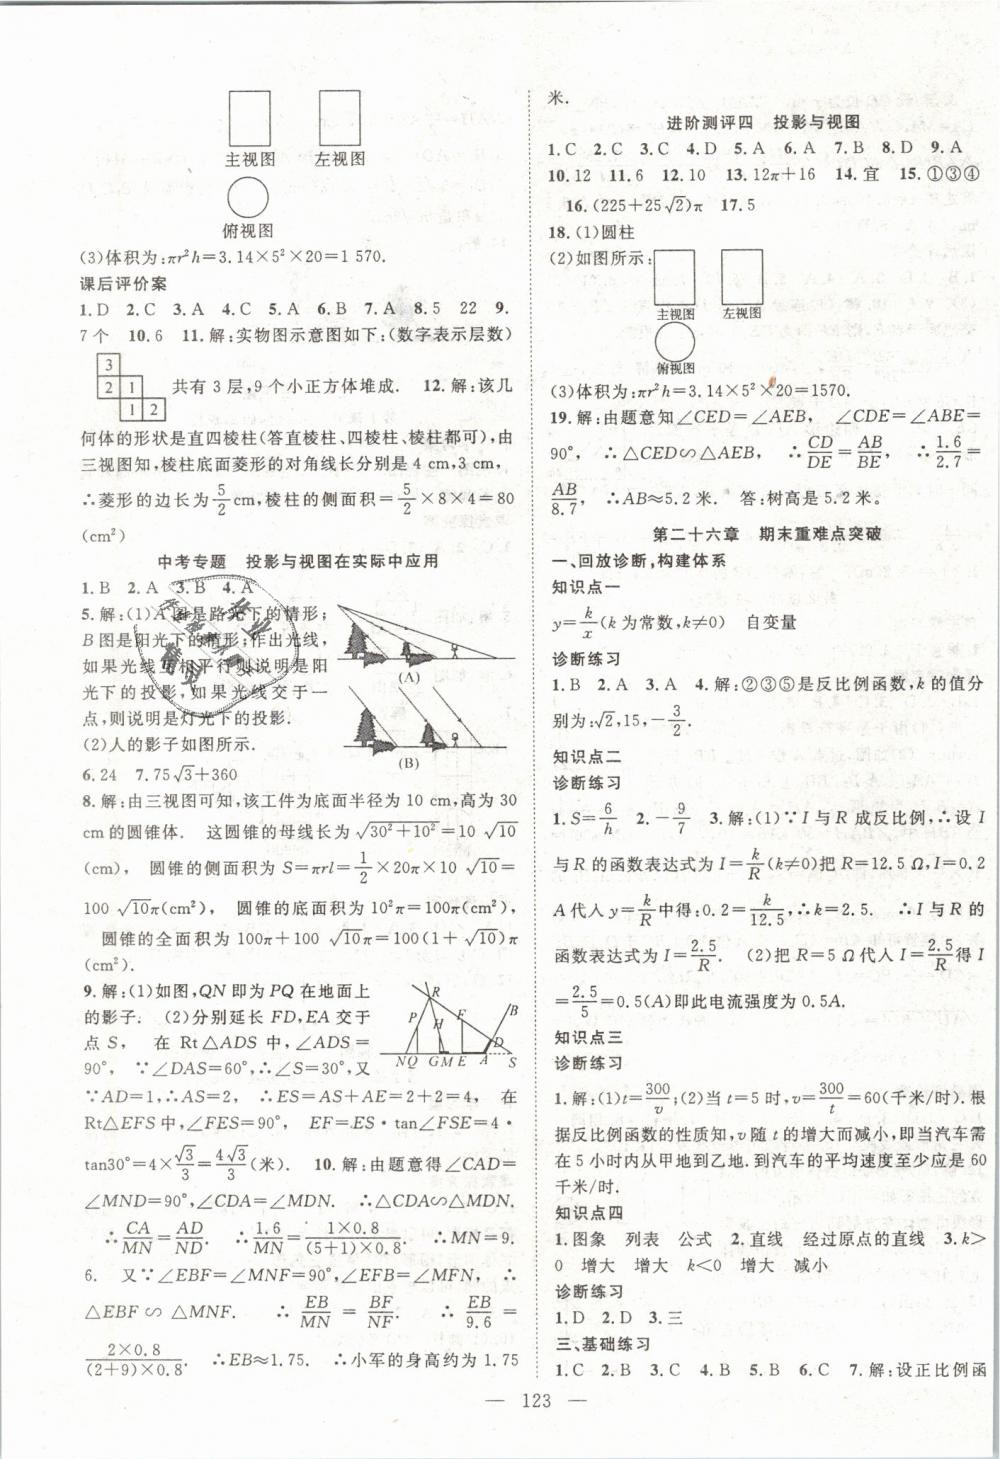 主视图 左视图
俯视图
(3)体积为:πr²h=3.14×5²×20=1 570.
课后评价案
1.D 2.C 3.A 4.C 5.A 6.B 7.A 8.5 22 9.
7个 10.6 11.解:实物图示意图如下:(数字表示层数)
3
2 1 共有3层,9个小正方体堆成. 12.解:该几
1 2
何体的形状是直四棱柱(答直棱柱、四棱柱、棱柱都可),由
三视图知,棱柱底面菱形的对角线长分别是4 cm,3 cm,
∴菱形的边长为5/2 cm,棱柱的侧面积=5/2×8×4=80
(cm²)
中考专题 投影与视图在实际中应用
1.B 2.A 3.B 4.A
5.解:(1)A图是路光下的情形;
B图是阳光下的情形;作出光线,
如果光线互相平行则说明是阳
光下的投影,如果光线交于一
点,则说明是灯光下的投影.
(2)人的影子如图所示.
(A)
(B)
6.24 7.75√3+360
8.解:由三视图可知,该工件为底面半径为10 cm,高为30
cm的圆锥体. 这圆锥的母线长为√(30²+10²)=10√10
(cm), 圆锥的侧面积为S=πrl=1/2×20π×10√10=
100√10π(cm²), 圆锥的底面积为10²π=100π(cm²),
圆锥的全面积为100π+100√10π=100(1+√10)π
(cm²).
9.解:(1)如图,QN即为PQ在地面上
的影子. (2)分别延长FD,EA交于
点S, 在Rt△ADS中,∠ADS=
90°, ∵∠DAS=60°,∴∠S=30°,又
R B P H F D
NQ GM E A S
∵AD=1,∴AS=2, ∴ES=AS+AE=2+2=4, 在
Rt△EFS中,∠FES=90°, EF=ES·tan∠FSE=4·
tan30°=4×√3/3=4√3/3(米). 10.解:由题意得∠CAD=
∠MND=90°,∠CDA=∠MDN. ∴△CDA∽△MDN.
∴CA/MN=AD/ND. ∴1.6/MN=1×0.8/(5+1)×0.8. ∴MN=9.
6. 又∵∠EBF=∠MNF=90°,∠EFB=∠MFN, ∴
△EBF∽△MNF. ∴EB/MN=BF/NF. ∴EB/9.6=
2×0.8/(2+9)×0.8. ∴EB≈1.75. ∴小军的身高约为1.75
米.
进阶测评四 投影与视图
1.C 2.C 3.C 4.D 5.A 6.A 7.B 8.D 9.A
10.12 11.6 12.10 13.12π+16 14.宜 15.①③④
16.(225+25√2)π 17.5
18.(1)圆柱
(2)如图所示:
主视图 左视图
俯视图
(3)体积为:πr²h=3.14×5²×20=1570.
19.解:由题意知∠CED=∠AEB, ∠CDE=∠ABE=
90°, ∴△CED∽△AEB, ∴CD/DE=AB/BE, ∴1.6/2.7=
AB/8.7, ∴AB≈5.2米. 答:树高是5.2米。
第二十六章 期末重难点突破
一、回放诊断,构建体系
知识点一
y=k/x(k为常数,k≠0) 自变量
诊断练习
1.B 2.A 3.A 4.解:②③⑤是反比例函数,k的值分
别为:√2,15,-3/2.
知识点二
诊断练习
1.S=6/h 2.-9/7 3.解:(1)∵I与R成反比例,∴设I
与R的函数表达式为I=k/R(k≠0)把R=12.5 Ω,I=0.2
A代人y=k/R中得:0.2=k/12.5,∴k=2.5. ∴I与R的
函数表达式为I=2.5/R. (2)把R=5 Ω代人I=2.5/R得I
=2.5/5=0.5(A)即此电流强度为0.5A.
知识点三
诊断练习
1.解:(1)t=300/v;(2)当t=5时,v=300/t=60(千米/时).根
据反比例函数的性质知,v随t的增大而减小,即当汽车需
在5小时内从甲地到乙地.到汽车的平均速度至少应是60
千米/时.
知识点四
1.图象 列表 公式 2.直线 经过原点的直线 3.k>
0 增大 增大 k<0 增大 减小
诊断练习
1.D 2.D 3.三
三、基础练习
1.C 2.B 3.C 4.B 5.C 6.C 7.解:设正比例函
— 123 —